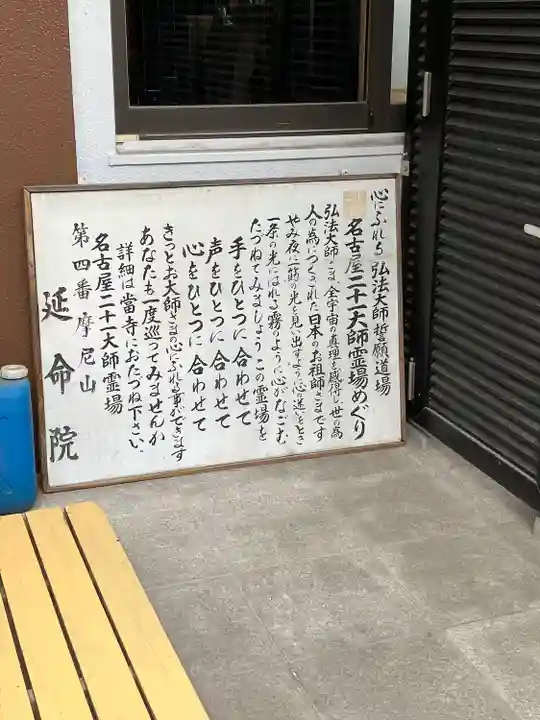 心にふれる 弘法大師誓願道場
名古屋二十一大師霊場めぐり
弘法大師さま、全宇宙の真理を感得し世の為
人の為につくされた日本のお祖師さまです
やみ夜に一筋の光を見い出すよう心の迷いをとき
一条の光にはれる霧のように心がなごむ
たづねてみましょう この霊場を
手をひとつに合わせて
声をひとつに合わせて
心をひとつに合わせて
きっとお大師さま心にふれる事ができます
あなたも一度巡ってみませんか
詳細は當寺におたづね下さい。
名古屋二十一大師霊場
第四番 摩尼山
延命院